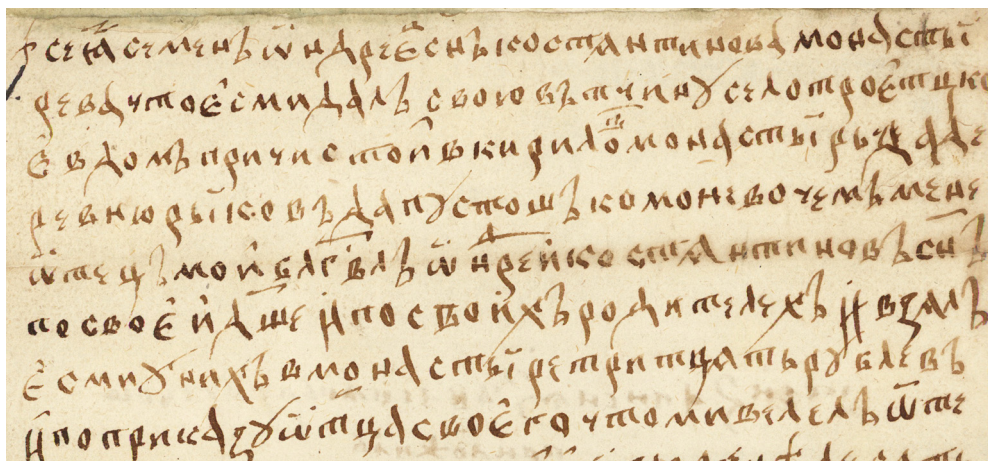 се ꙗ семенъ ѿндрѣевъ снъ костантинова монасты
рева что есми далъ свою вътчину село троецко
е в домъ причистои в кирилов монастырь да де
ревню рыково да пустошъ комонево чемъ мене
ѡтецъ мои блгвлъ ѡндреи костантиновъ снъ
по своеи дше и по своихъ родителехъ и взалъ
есми у нихъ в монастыре тритцать рублевъ
и по приказу ѡтца своего что ми велелъ ѡте